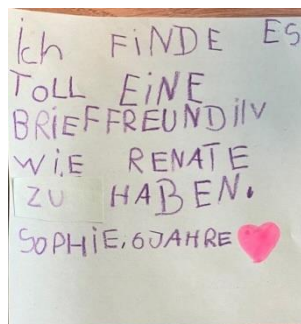 ich FiNDE ES
TOLL EiNE
BRIEFFREUNDiN
WiE RENATE
ZU HABEN.
SOPHiE, 6 JAHRE